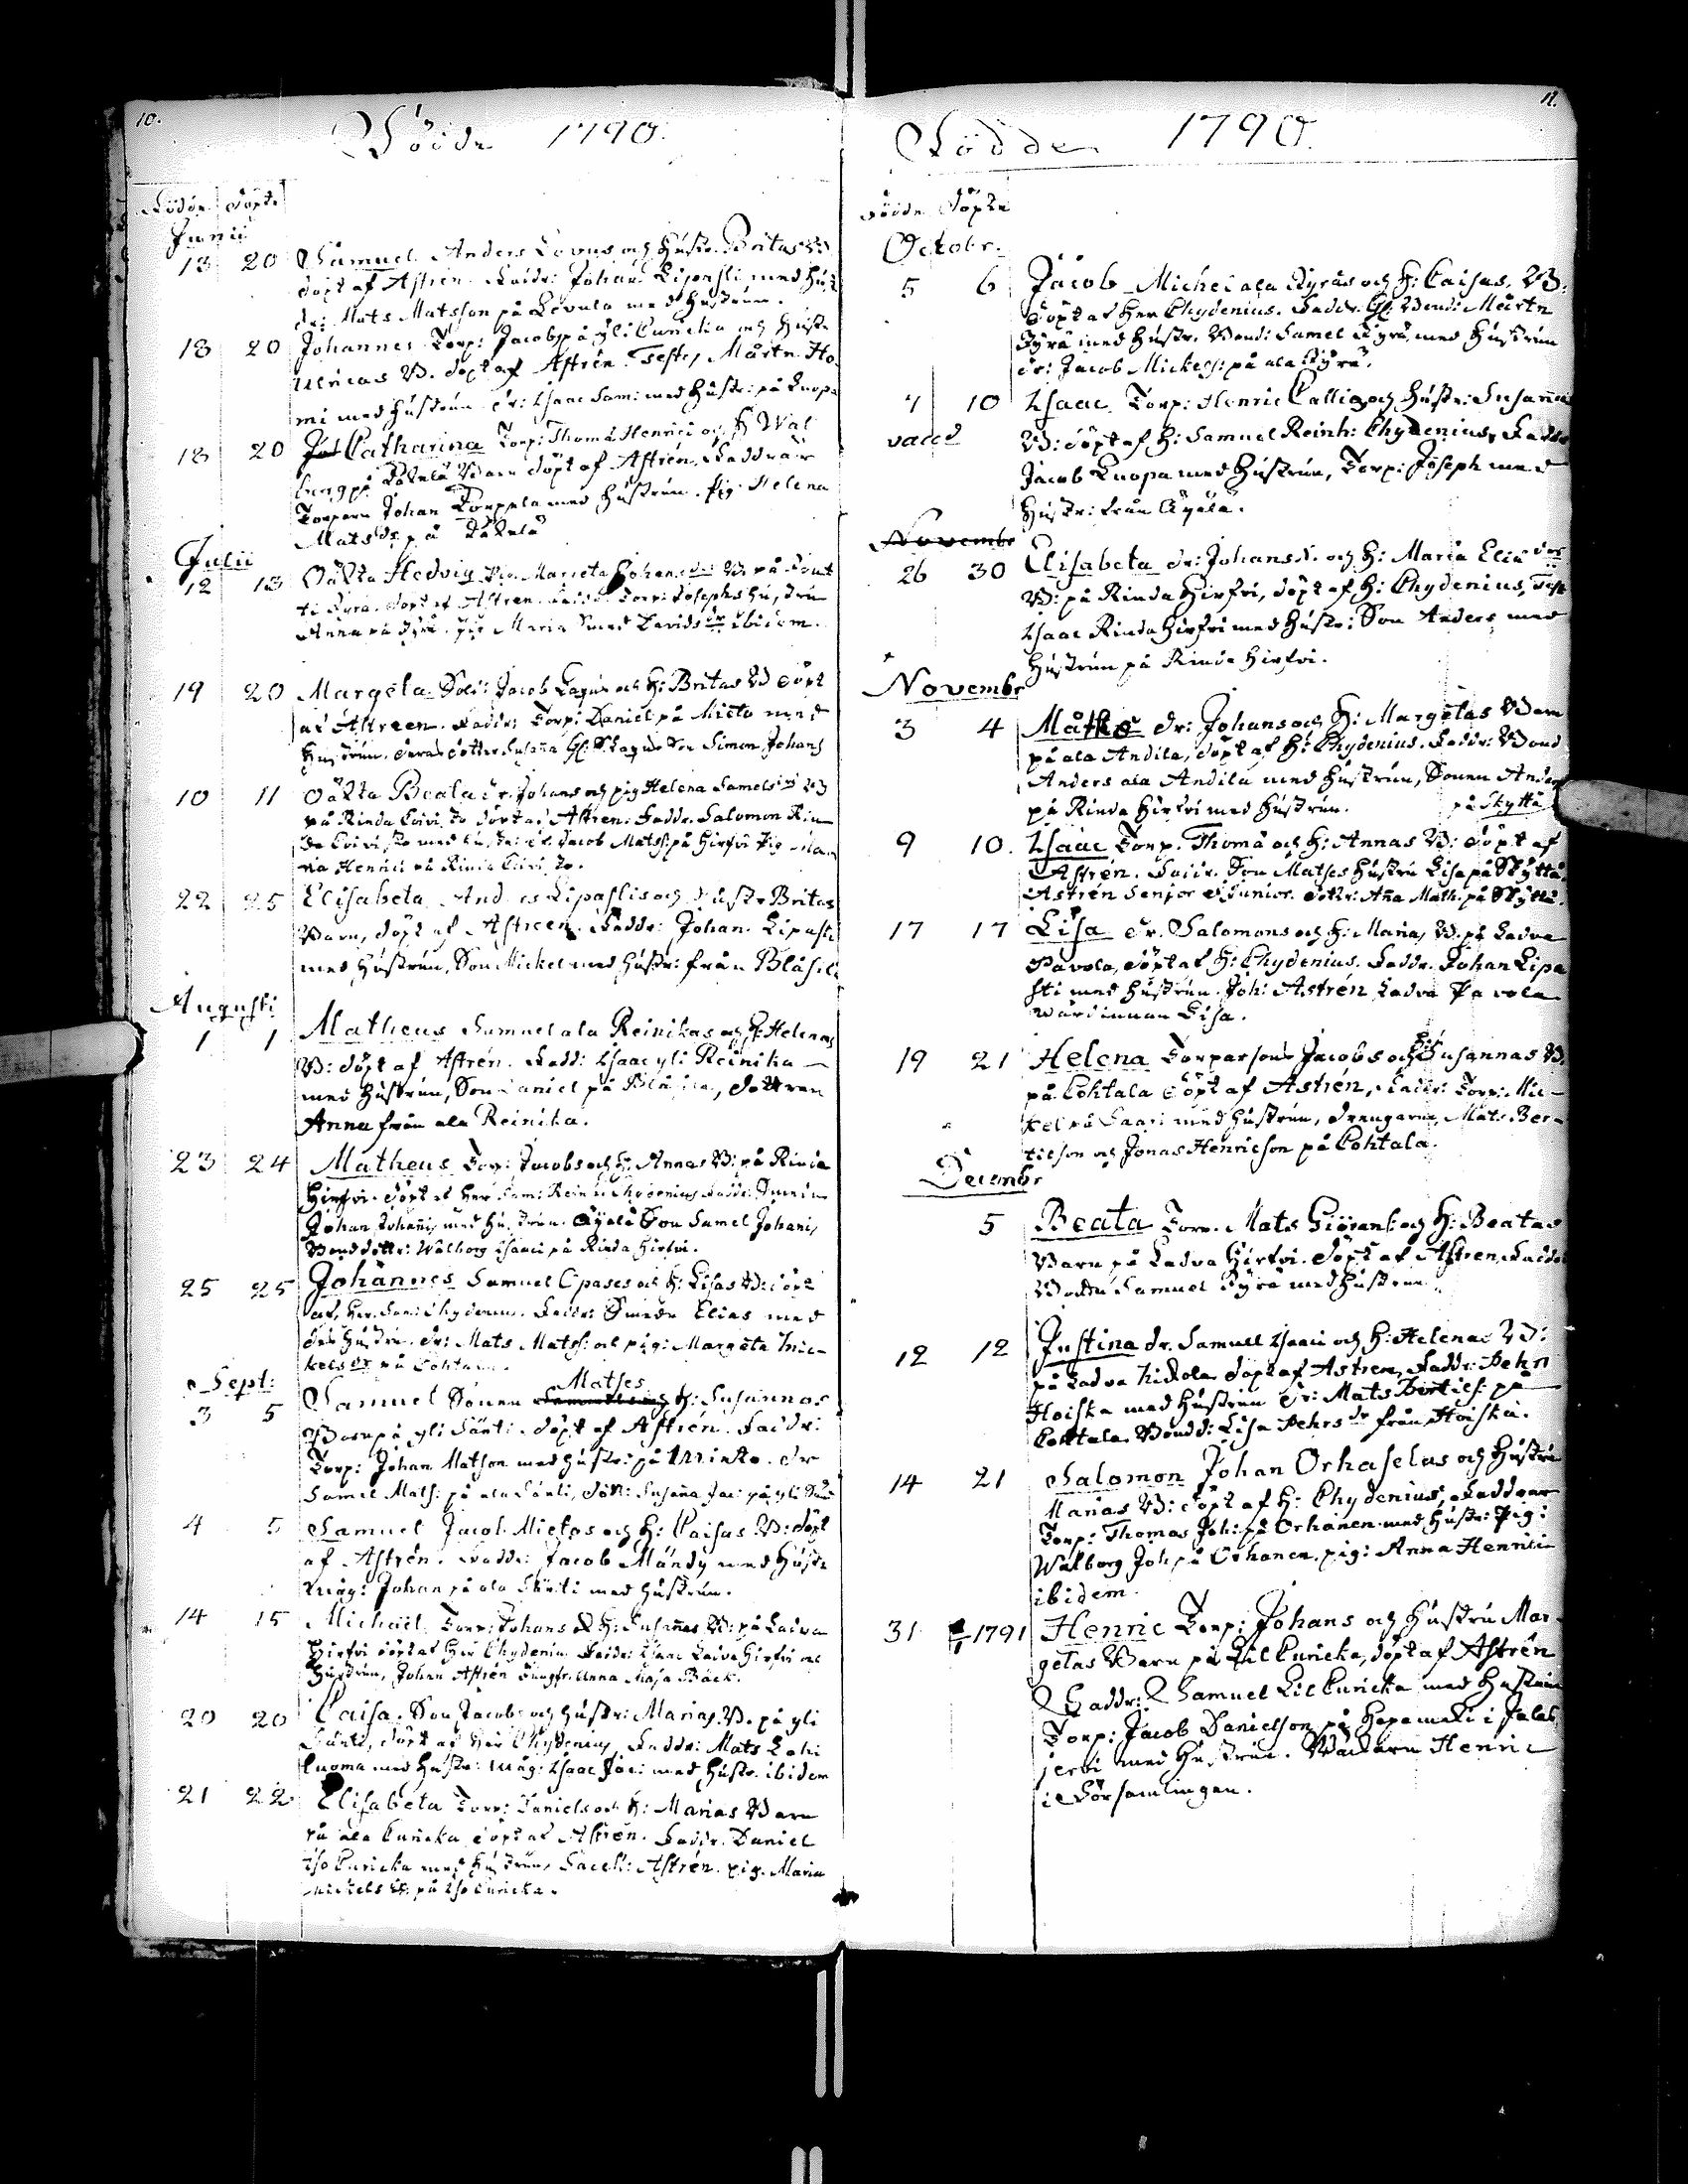 10.
Födde 1790.
Födde Döpte
Junii
13 20 Samuel Anders Lovus och Hustr. Britas B:
döpt af Astrén. Faddr: Johan Lipasti med Hust
dr: Mats Matsson på Levula med Hustrun.
18 20 Johannes Torp: Jacobs på yli Cunicka och Hustr
Ulricas B. döpt af Astrén. Test, Mårtn Ho
mi med Hustrun dr: Isaac Sam: med Hustr: på Luopa
18 20 Catharina Torp: Thomä Henrici och H Wal
borg på Barn döpt af Astrén. Faddrar
Torparn Johan Torppila med Hustrun. Pig. Helena
Mats dr på
Julii
12 13 Oäkta Hedvig Pig. Marieta Johans dr: B: på
Fyrä. döpt af Astren. Faddr. Torp: Josephs Hustru
Anna på Fyrä. Pig Maria Davids dr ibidem.
19 20 Margeta Sold: Jacob Lagus och H: Britas B döpt
af Astreen. Faddr: Torp: Daniel på Mieto med
Hustrun. dotter Susaña Son Simon Johans
10 11 Oäkta Beata dr. Johans och pig Helena Samels dr B
på Rinda döpt af Astren. Faddr. Salomon Rin
da med Hustr: dr. Jacob Mats: på Hirfvi Pig Ma
ria Henrici på Rinda
22 25 Elisabeta And es Lipastis och Hustr Britas
Barn, döpt af Astreen. Faddr: Johan Lipasti
med Hustrun, Son Mickel med Hustr: från Blåfi
Augusti
1 1 Matheus Samuel ala Reinikas och H: Helenas
B: döpt af Astrén. Fadd: Isaac yli Reinika
med Hustrun, Son Daniel på dottren
Anna från ala Reinika.
23 24 Matheus Torp: Jacobs och H: Annas B: på Rinda
Hirfvi. döpt af Herr Sam: Rein: Chydenius Faddr:
Johan Johañis med Hustrun. Äyälä Son Samel Johanis,
Bond dottr: Walborg Isaaci på Rinda Hirfvi.
25 25 Johannes Samuel Opases och H: Lisas B: döpt
af Her. Sam: Chydenius. Faddr: Smeden Elias med
Hustru. dr: Mats Mats: och pig: Margeta Mic-
kels dr på Cohtala.
Sept:
3 5 Samuel Sonen Matses H: Susannas
Barn på yli Sänti. döpt af Astrén. Faddr:
Torp: Johan Matson med Hustr: på Mieto. dr
Samel Mats: på ala Sänti, dott: Susaña Jac: på yli
4 5 Samuel Jacob Mietos och H: Caisas B: döpt
af Astrén. Faddr: Jacob Mändy med Hustr
Måg: Johan på ala Sänti med Hustrun.
14 15 Michael Torp: Johans & H: Susañas B: på Ladva
Hirfvi döpt af Her Chydenius Faddr: Isaac Ladva Hirfvi
Hustrun, Johan Astrén Jungfr. Anna Maja Bäck.
20 20 Caisa. Son Jacobs och Hustr: Marias B. på yli
Säntti, döpt af Her Chydenius, Faddr: Mats
Luoma med Hustr: Måg: Isaac Jac: med Hustr. ibidem
21 22 Elisabeta Torp: Daniels och H: Marias Barn
på ala Cunicka döpt af Astrén. Faddr. Daniel
Iso Cunicka med Hustrun, Sacell: Astrén. pig. Maria
Mickels dr på Iso Cunicka.
11.
Födde 1790.
Födde Döpte
Octobr.
5 6 Jacob Michel ala Fyräs och H: Caisas. B:
döpt af Her Chydenius. Faddr. Bond: Mårtn
Fyrä med Hustr. Bond: Samel Fyrä, med Hustrun
dr: Jacob Mickels: på ala Fyrä.
4 10 Isaac Torp: Henric Calligs och Hustr: Susanna
B: döpt af H: Samuel Reinh: Chydenius, Faddr
Jacob Luopa med Hustrun, Torp: Joseph med
Hustr: från Äyälä.
Novembr
26 30 Elisabeta dr: Johans S. och H: Maria Elia dr
B: på Rinda Hirfvi, döpt af H: Chydenius, Test
Isaac Rinda Hirfvi med Hustr: Son Anders med
Hustrun på Rinda Hirfvi.
Novembr
3 4 Mathe dr: Johans och H: Margetas Barn
på ala Andila, döpt af H: Chydenius. Faddr: Bond
Anders ala Andila med Hustrun, Sonen Anders
på Rinda Hirfvi med Hustrun. på Skyttä
9 10. Isaac Torp. Thomä och H: Annas B: döpt af
Astrén. Faddr. Son Matses Hustru Lisa på Skyttä,
Astrén Senior & Junior. dottr: Aña Math. på Skyttä.
17 17 Lisa dr. Salomons och H: Marias B. på Ladva
Pavola, döpt af H: Chydenius. Faddr. Johan Lipa
sti med Hustrun. Joh: Astrén Ladva Pavola
Wärdinnan Lisa.
19 21 Helena Torparsons Jacobs och H: Susannas B:
på Cohtala döpt af Astrén, Faddr: Torp: Mic-
kel på Saari med Hustrun, Drengarne, Mats Ber-
tilson och Jonas Henricson på Cohtala.
Decembr
5 Beata Torp. Mats Giörans: och H: Beatas
Barn på Ladva Hirfvi. döpt af Astren, Faddr
Bonde Samuel Fyrä med Hustrun.
12 12 Justina dr. Samuell Isaaci och H: Helenas B:
på Ladva Nickola döpt af Astren, Faddr: Pehr
Hoiska med Hustrun dr: Mats Bertils: på
Cohtala. Bondd: Lisa Pehrs dr från Hoiska.
14 21 Salomon Johan Orhaselas och Hustru
Marias B: döpt af H: Chydenius, Faddrar
Torp: Thomas Joh: på Orhanen med Hustr: Pig:
Walborg Joh, på Orhanen, pig: Anna Henrici
ibidem.
31 1791 Henric Torp: Johans och Hustru Mar-
getas Barn på Lil Cunicka, döpt af Astrén
Faddr: Samuel Lil Cunicka med Hustrun
Torp: Jacob Danielson på Hapamäki i Jalas
jervi med Hustrun. Henric
i Församlingen.